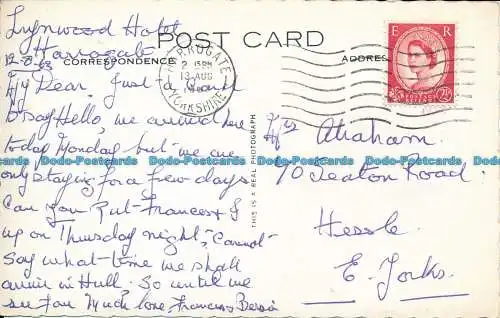 Lynwood Hotel
Harrogate
12-8-63
POST CARD
CORRESPONDENCE
ADDRESS
HARROGATE
2 15PM
13 AUG
YORKSHIRE
E R
POSTAGE
REVENUE
2½D
My Dear, Just a Card
to say Hello, we arrived here
today Monday but we are
only staying for a few days
Can you Put Frances & I
up on Thursday night, Cannot
Say what time we shall
arrive in Hull. So until we
see you Much love, Frances Bessie
THIS IS A REAL PHOTOGRAPH
Mrs Abraham.
70 Seaton Road.
Hessle
E. Yorks.
Dodo-Postcards Dodo-Postcards Dodo-Postcards Dodo-Postcards